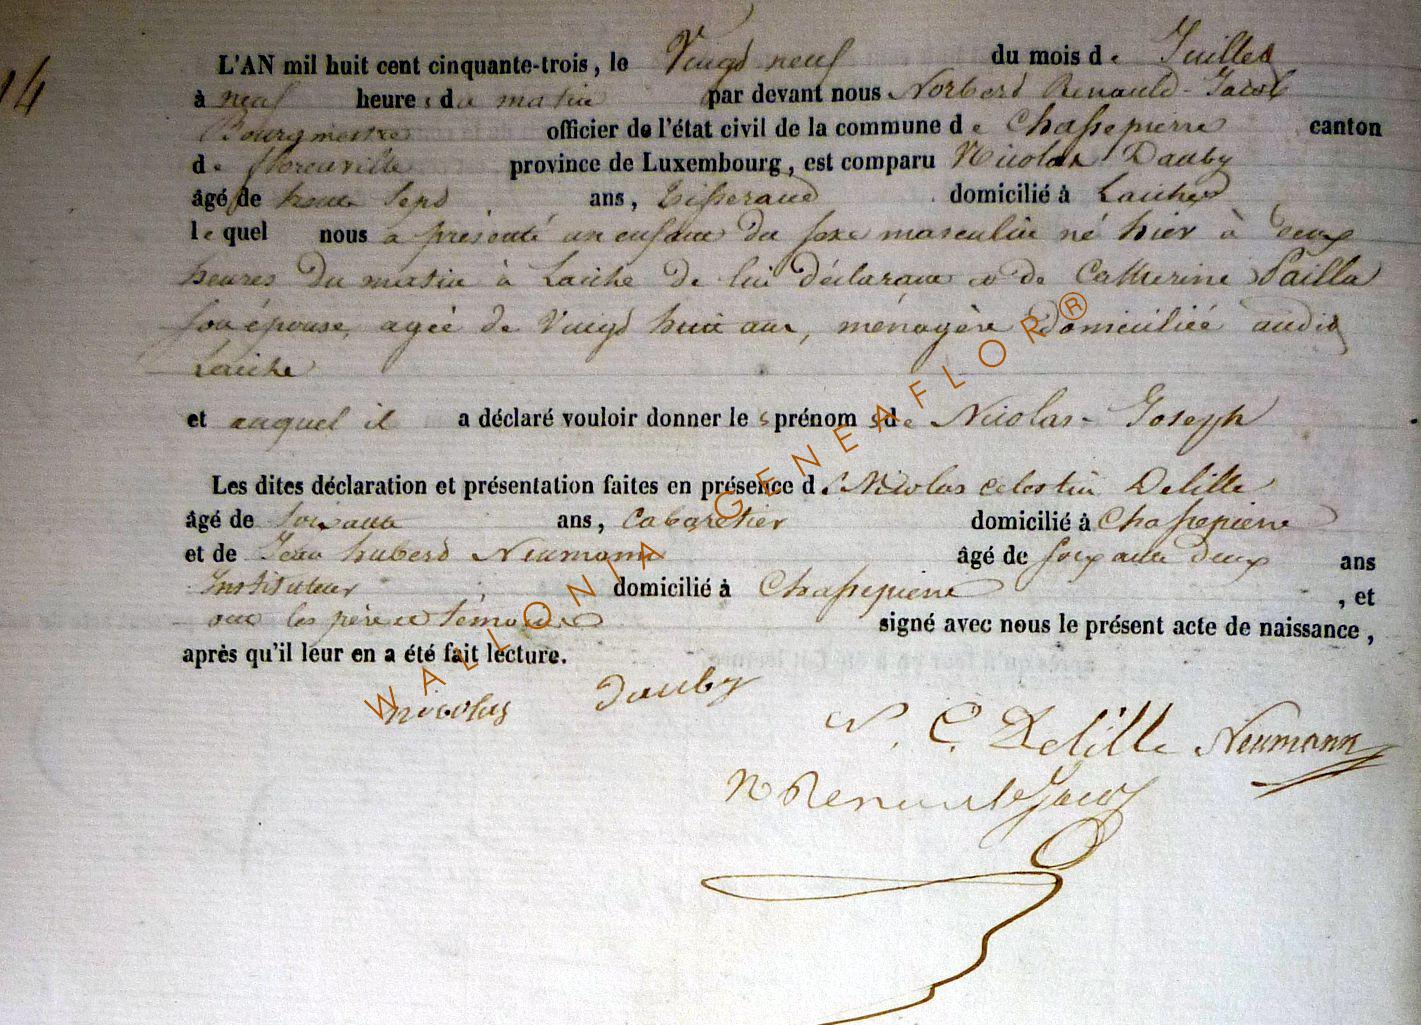 14
L'AN mil huit cent cinquante-trois, le Vingt neuf du mois de Juillet
à neuf heures du matin par devant nous Norbert Renauld-Jacob
Bourgmestre officier de l'état civil de la commune de Chassepierre canton
de florenville province de Luxembourg, est comparu Nicolas Dauby
âgé de trente sept ans, Tisserand domicilié à Laiche
lequel nous a présenté un enfant du sexe masculin né hier à deux
heures du matin à Laiche de lui déclarant et de Catherine Pailla
son épouse, agée de Vingt huit ans, ménagère domiciliée audit
Laiche
et auquel il a déclaré vouloir donner les prénoms de Nicolas-Joseph
Les dites déclaration et présentation faites en présence de Nicolas celestin Delille
âgé de soixante ans, Cabaretier domicilié à Chassepierre
et de Jean hubert Neumann âgé de soixante deux ans
Instituteur domicilié à Chassepierre, et
ont les père et témoins signé avec nous le présent acte de naissance,
après qu'il leur en a été fait lecture.
nicolas Dauby
N. C. Delille Neumann
N Renauld Jacob
WALLONIA GENEAFLOR®